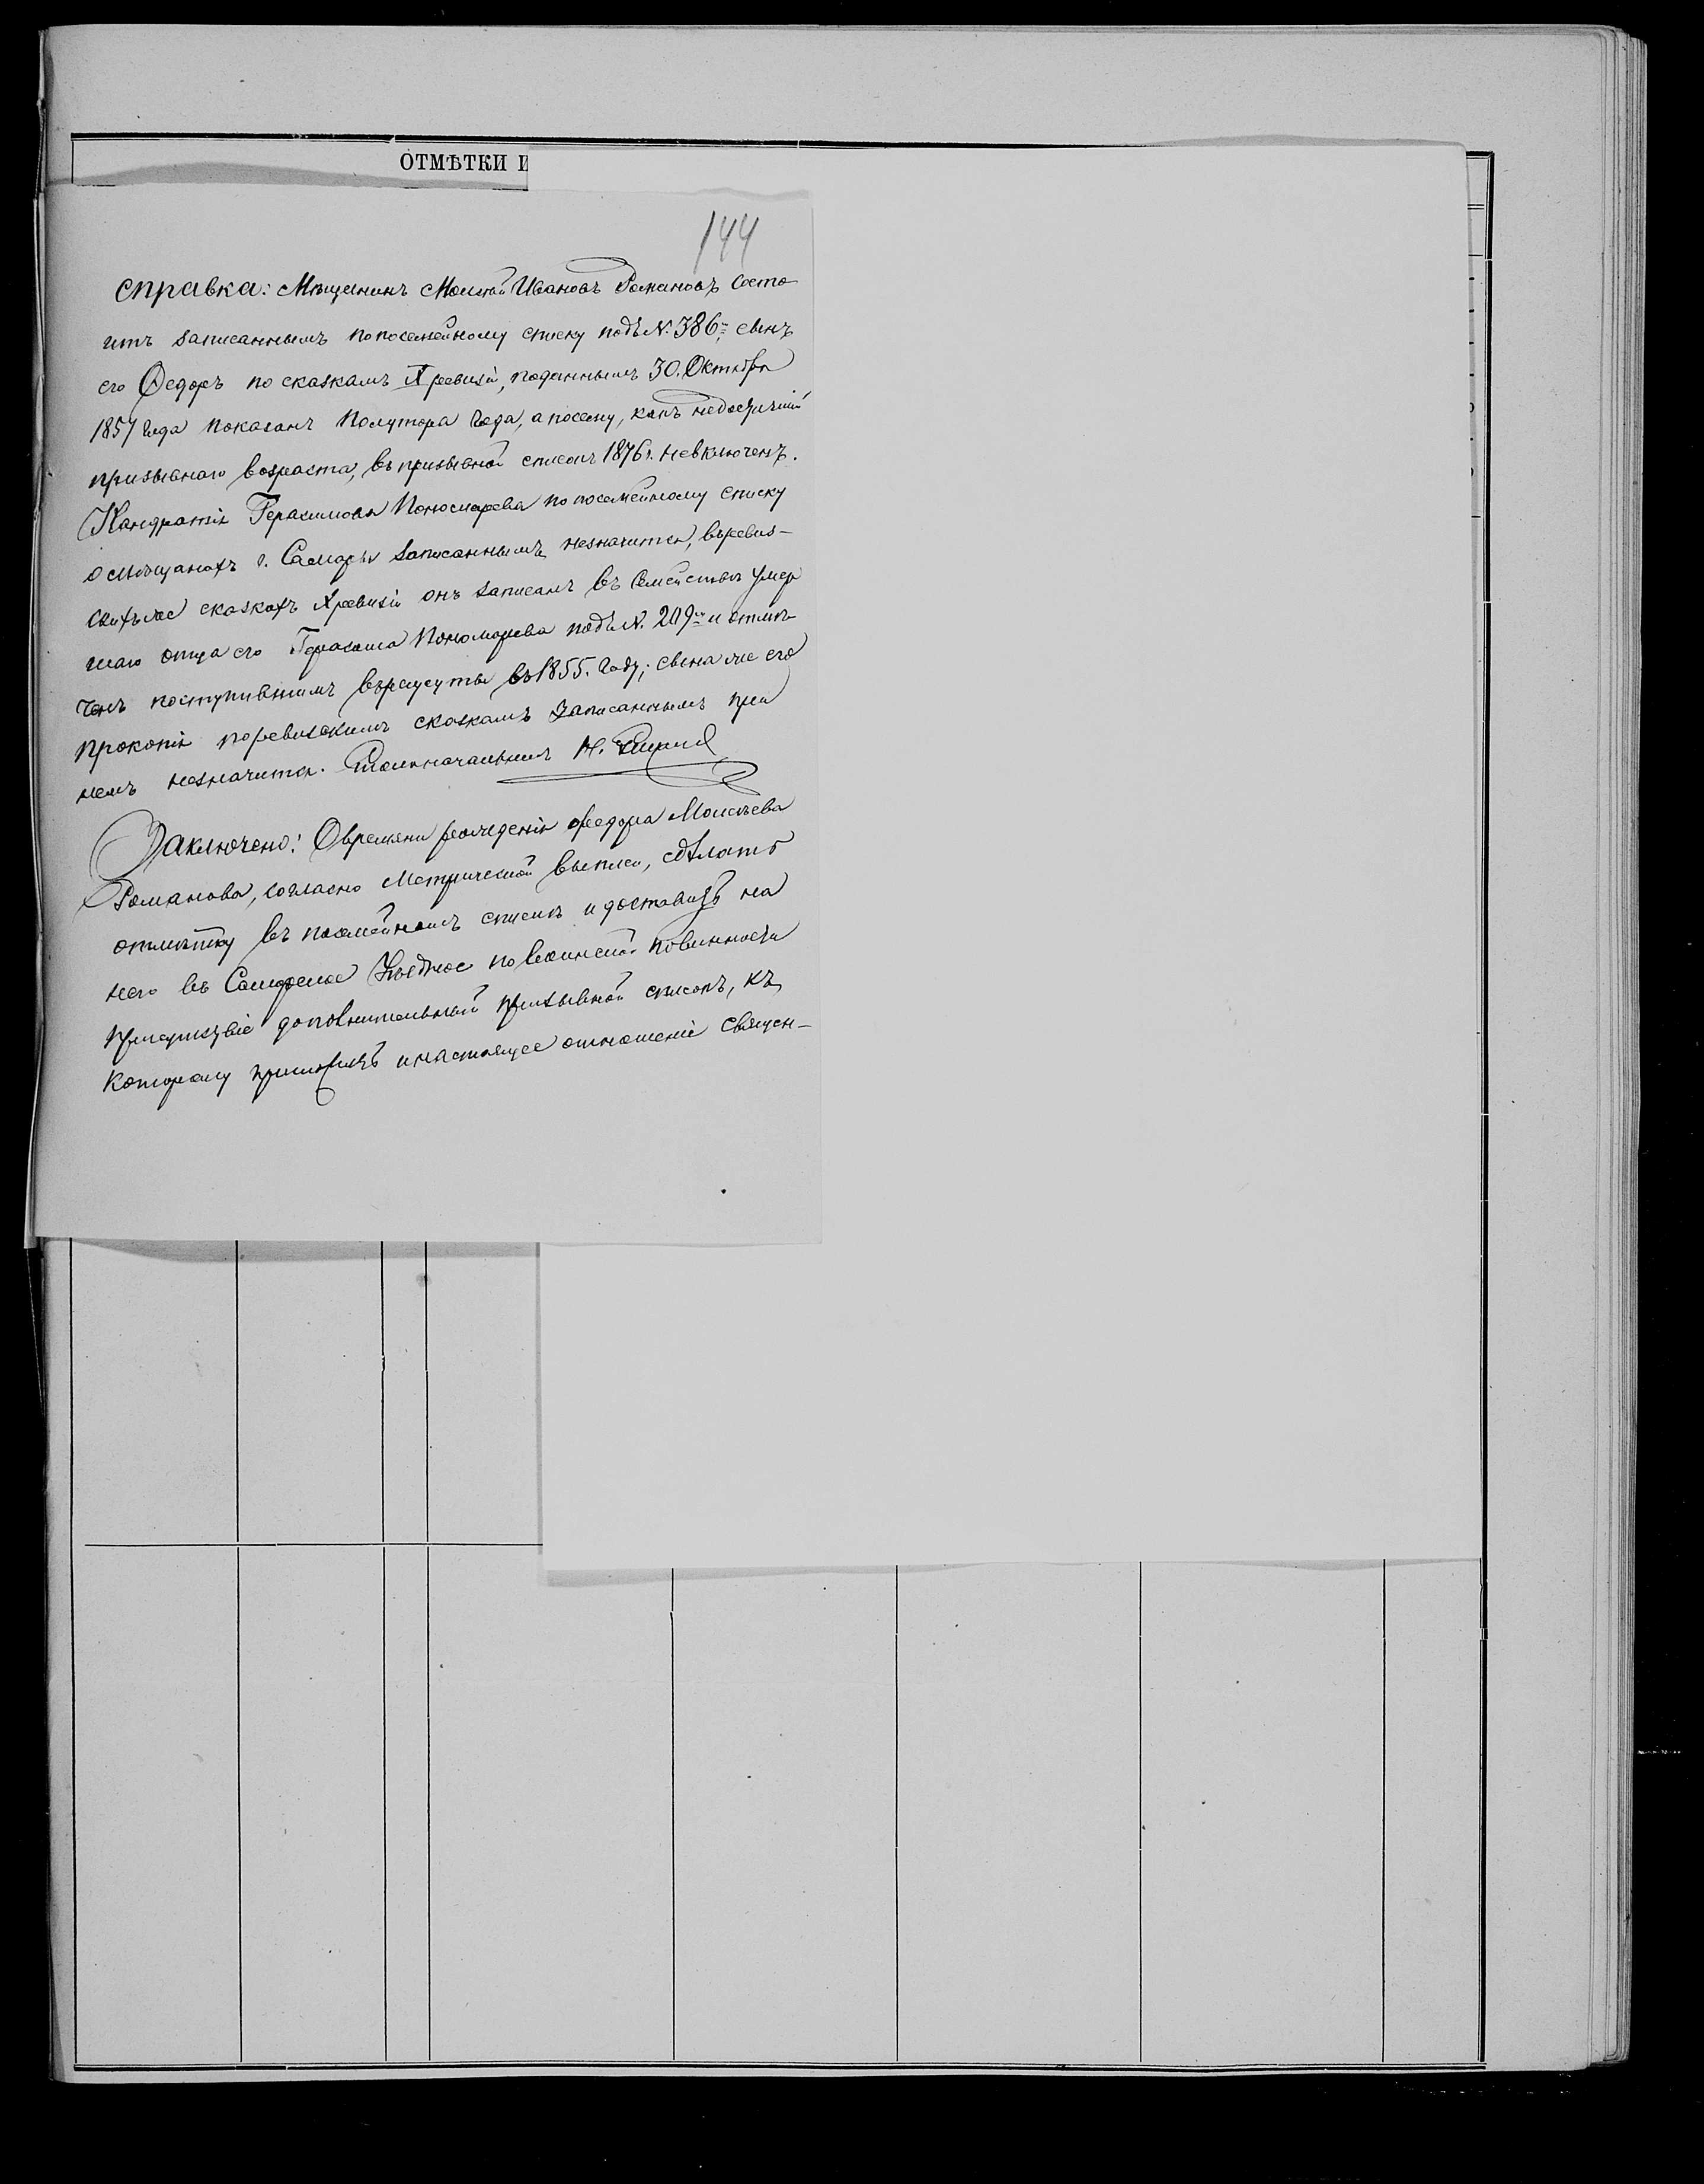 ОТМѢТКИ И
144
Справка: Мѣщанинъ Моисей Ивановъ Романовъ состо-
итъ записаннымъ по посемейному списку подъ №. 386м, сынъ
его Федоръ по сказкамъ X ревизіи, поданнымъ 30. Октября
1857 года показанъ полутора года, а посему, какъ недостигшій
призывнаго возраста, въ призывной списокъ 1876 г. не включенъ.
Кандратія Герасимова Пономарева по посемейному списку
о мѣщанахъ г. Самары записаннымъ незначится, въ ревиз-
скихъ же сказкахъ X ревизіи онъ записанъ въ семействѣ умер
шаго отца его Герасима Пономарева подъ №. 209м и отмѣ-
ченъ поступившимъ въ рекруты въ 1855. году; сына же его
Прокопія по ревизскимъ сказкамъ записаннымъ при
немъ незначится. Столоначальникъ Н.
Заключено: О времени рожденія Федора Моисѣева
Романова, согласно метрической выписи, сдѣлать
отмѣтку въ посемейномъ спискѣ и доставить на
него въ Самарское Уѣздное по воинской повинности
Присутствіе дополнительный призывной списокъ, къ
которому приложить и настоящее отношеніе священ-